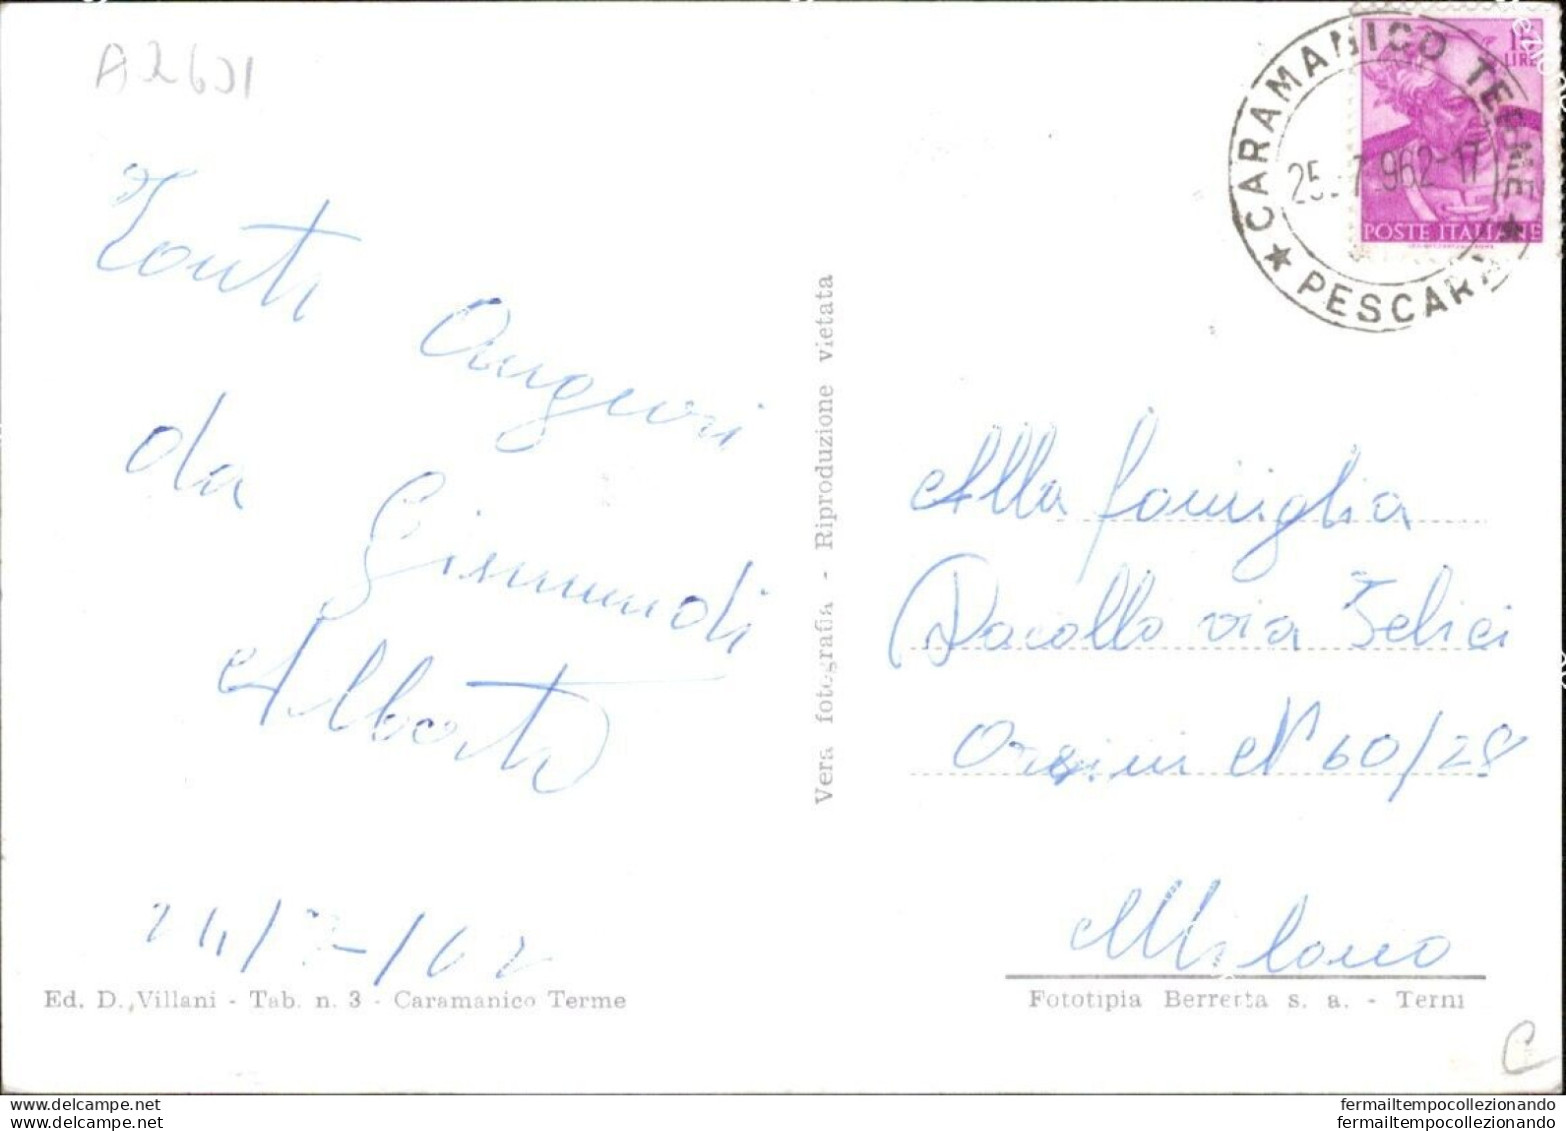 A2601
15
LIRE
CARAMANICO TERME
25.-7.962-17
POSTE ITALIANE
★ PESCARA ★
Tanti
Auguri
da Gismondi
Alberto
24/7-/62
Vera fotografia - Riproduzione vietata
Alla famiglia
Dacollo via Felici
Orsini N 60/28
Milano
Ed. D. Villani - Tab. n. 3 - Caramanico Terme
Fototipia Berretta s. a. - Terni
C
www.delcampe.net
www.delcampe.net
fermailtempocollezionando
fermailtempocollezionando